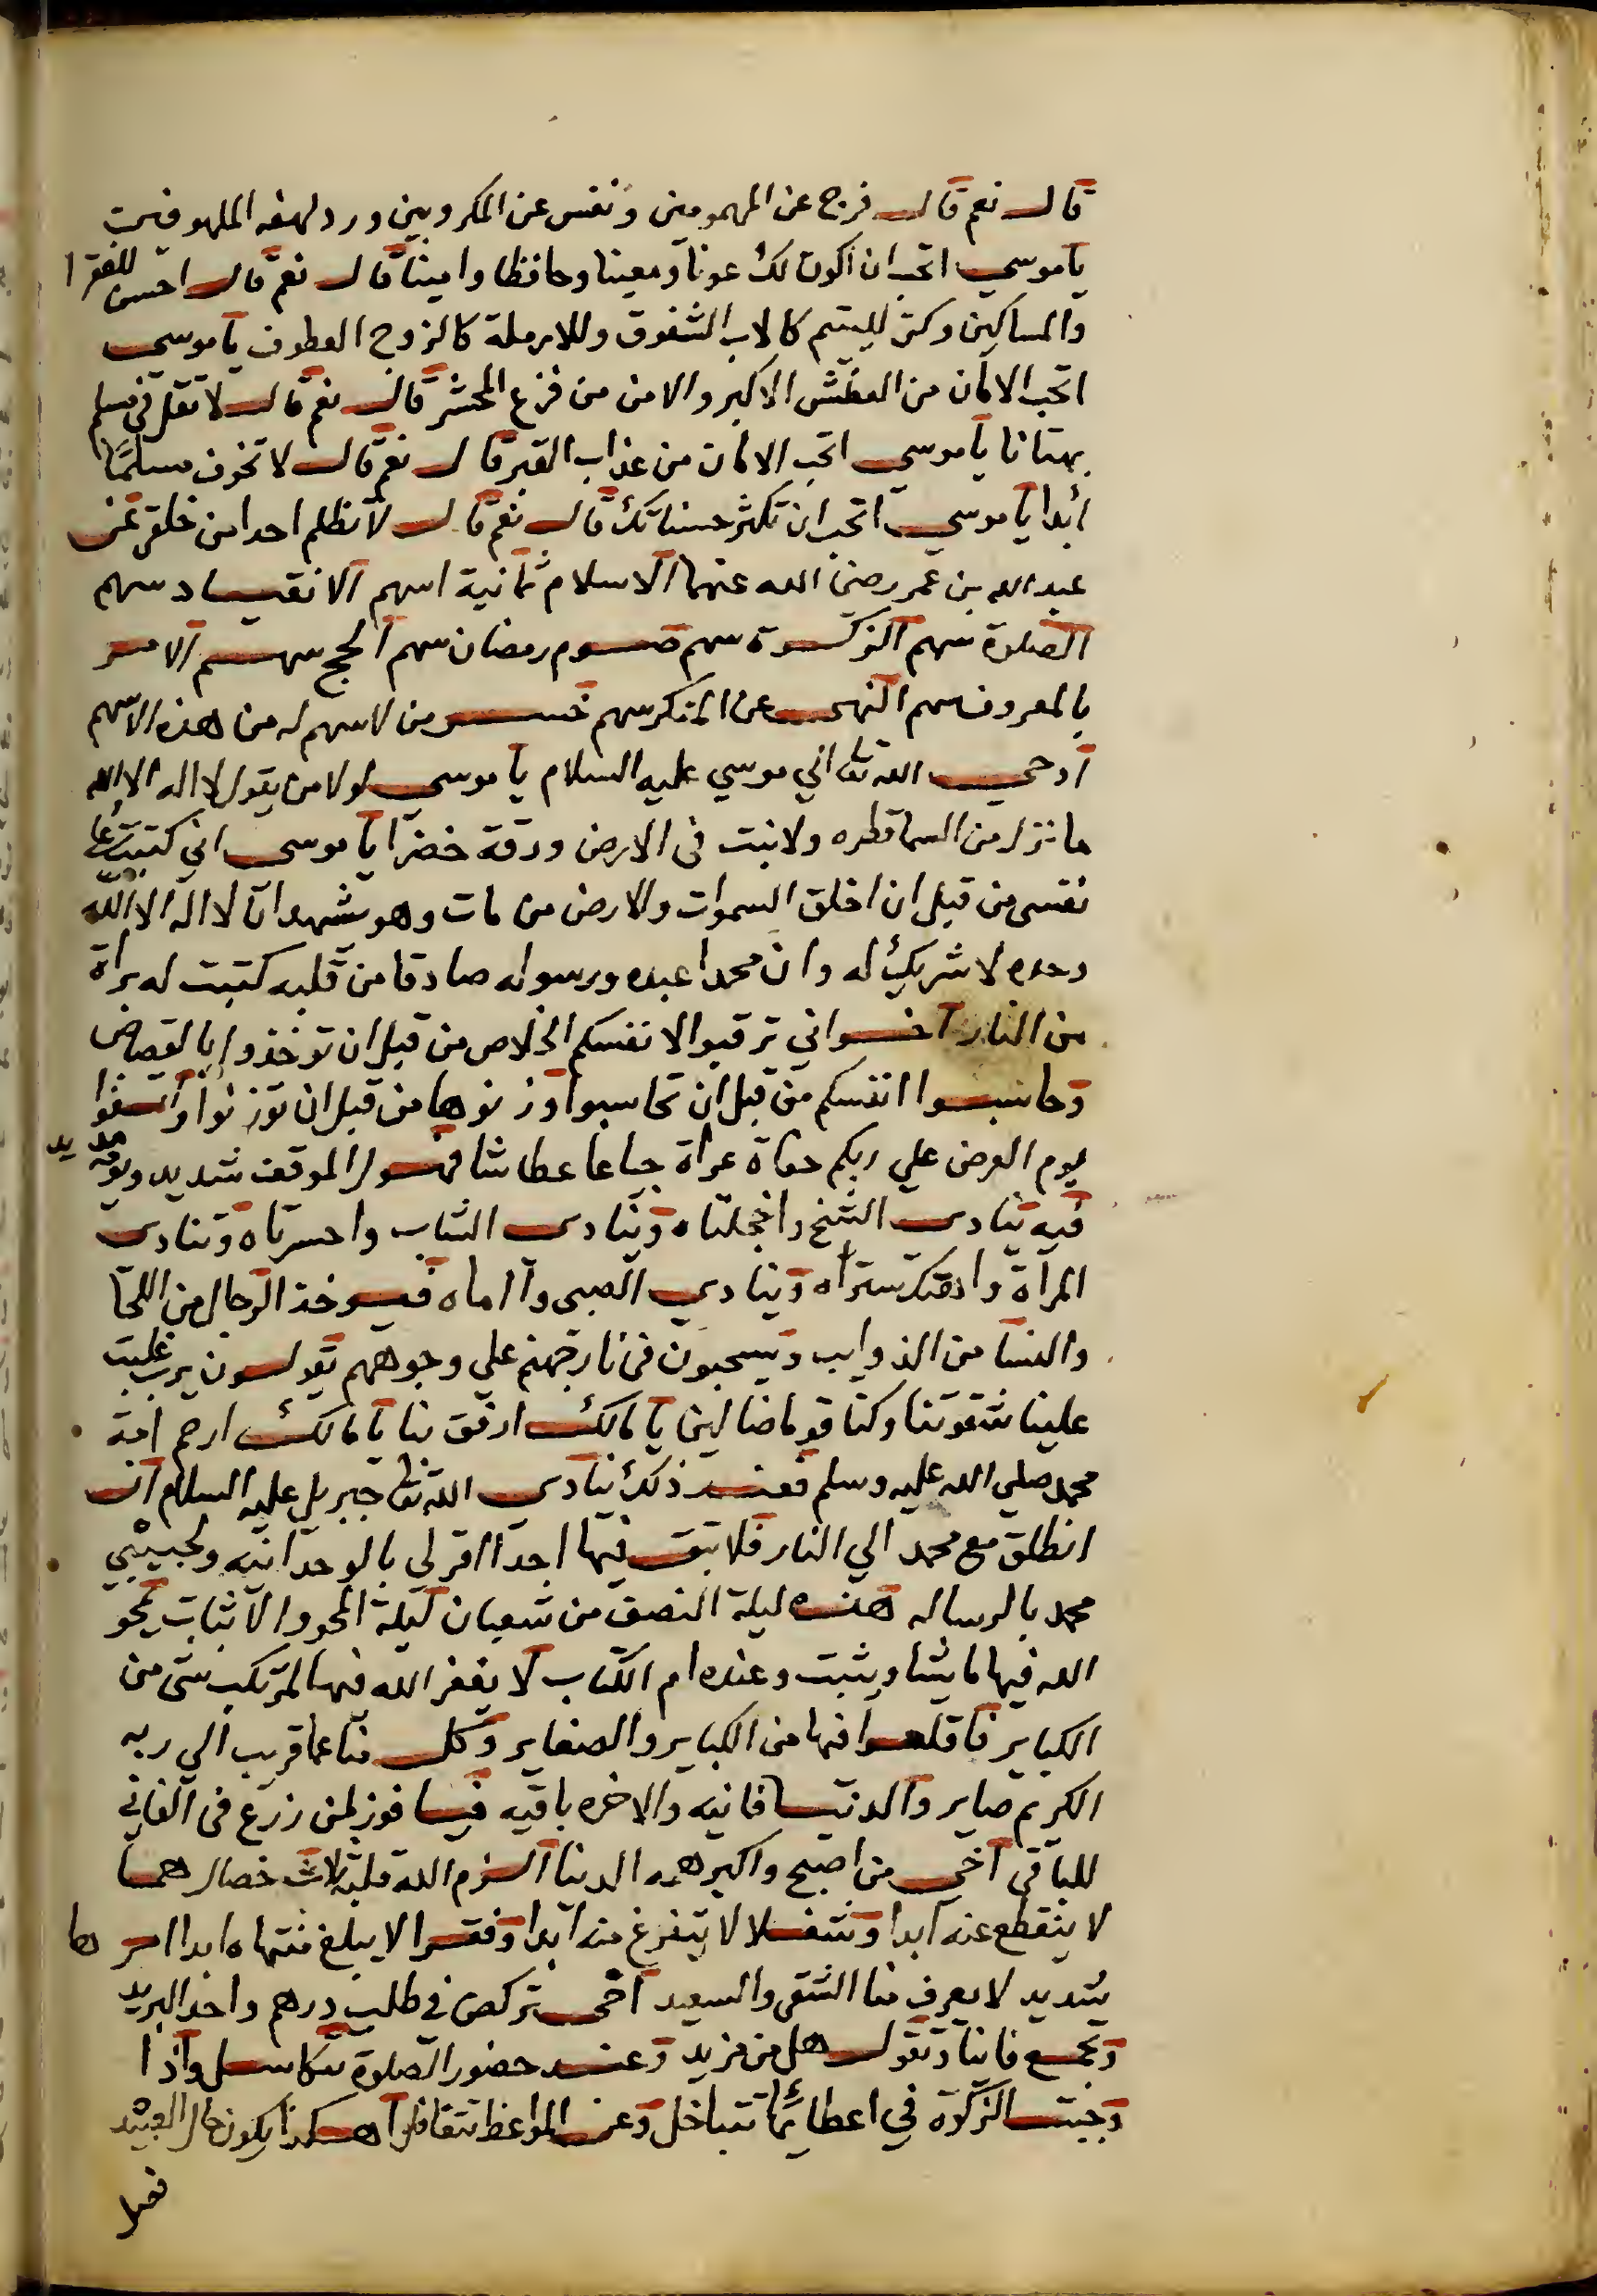 قال نعم قال فرج عن المهمومين ونفس عن المكروبين ورد لهفه الملهوفين
يا موسي اتحب ان اكون لك عونا ومعينا وحافظا وامينا قال نعم قال احسن للفقرا
والمساكين وكن لليتيم كالاب الشفوق وللارملة كالزوج العطوف يا موسي
اتحب الامان من العطش الاكبر والامن من فزع المحشر قال نعم قال لا تقل في مسلم
بهتانا يا موسي اتحب الامان من عذاب القبر قال نعم قال لا تخوف مسلما
ابدا يا موسي اتحب ان تكثر حسناتك قال نعم قال لا تظلم احدا من خلقي عن
عبد الله بن عمر رضي الله عنهما الاسلام ثمانية اسهم الانقياد سهم
الصلوة سهم الزكوة سهم صوم رمضان سهم الحج سهم الامر
بالمعروف سهم النهي عن المنكر سهم خسر من لاسهم له من هذه الاسهم
اوحي الله تعا الي موسي عليه السلام يا موسي لولا من يقول لا اله الا الله
ما نزل من السما قطره ولا نبت في الارض ورقة خضرا يا موسي اني كتبت علي
نفسي من قبل ان اخلق السموات والارض من مات وهو يشهد ان لا اله الا الله
وحده لا شريك له وان محمدا عبده ورسوله صادقا من قلبه كتبت له براة
من النار اخواني ترقبوا لانفسكم الخلاص من قبل ان توخذوا بالقصاص
وحاسبوا انفسكم من قبل ان تحاسبوا وزنوها من قبل ان توزنوا
يوم العرض علي ربكم حفاة عراة جياعا عطاشا فهول الموقف شديد
فيه ينادي الشيخ واخجلتاه وينادي الشاب واحسرتاه وتنادي
المراة واهتك ستراه وينادي الصبي وا اماه فيوخذ الرجال من اللحا
والنسا من الذوايب ويسحبون في نار جهنم علي وجوههم يقولون رب غلبت
علينا شقوتنا وكنا قوما ضالين يا مالك ارفق بنا يا مالك ارحم امة
محمد صلي الله عليه وسلم فعند ذلك ينادي الله تعا جبريل عليه السلام ان
انطلق مع محمد الي النار فلا تبق فيها احدا اقر لي بالوحدانيه ولحبيبي
محمد بالرساله هذه ليلة النصف من شعبان ليلة المحو والاثبات يمحو
الله فيها ما يشا ويثبت وعنده ام الكتاب لا يغفر الله فيها لمرتكب شي من
الكباير فاقلعوا فيها من الكباير والصغاير وكل منا عما قريب الي ربه
الكريم صاير والدنيا فانيه والاخره باقيه فيا فوز لمن زرع في الفاني
للباقي اخي من اصبح واكبر همه الدنيا الزم الله قلبه ثلاث خصال هما
لا ينقطع عنه ابدا وشغلا لا يتفرغ منه ابدا وفقرا لا يبلغ منتهاه ابدا امرها
شديد لا يعرف منا الشقي والسعيد اخي تركض في طلب درهم واحد البريد
وتجمع فانيا وتقول هل من مزيد وعند حضور الصلوة تتكاسل واذا
وجبت الزكوة في اعطائها تتباخل وعن المواعظ تتغافل اهكذا يكون حال العبيد